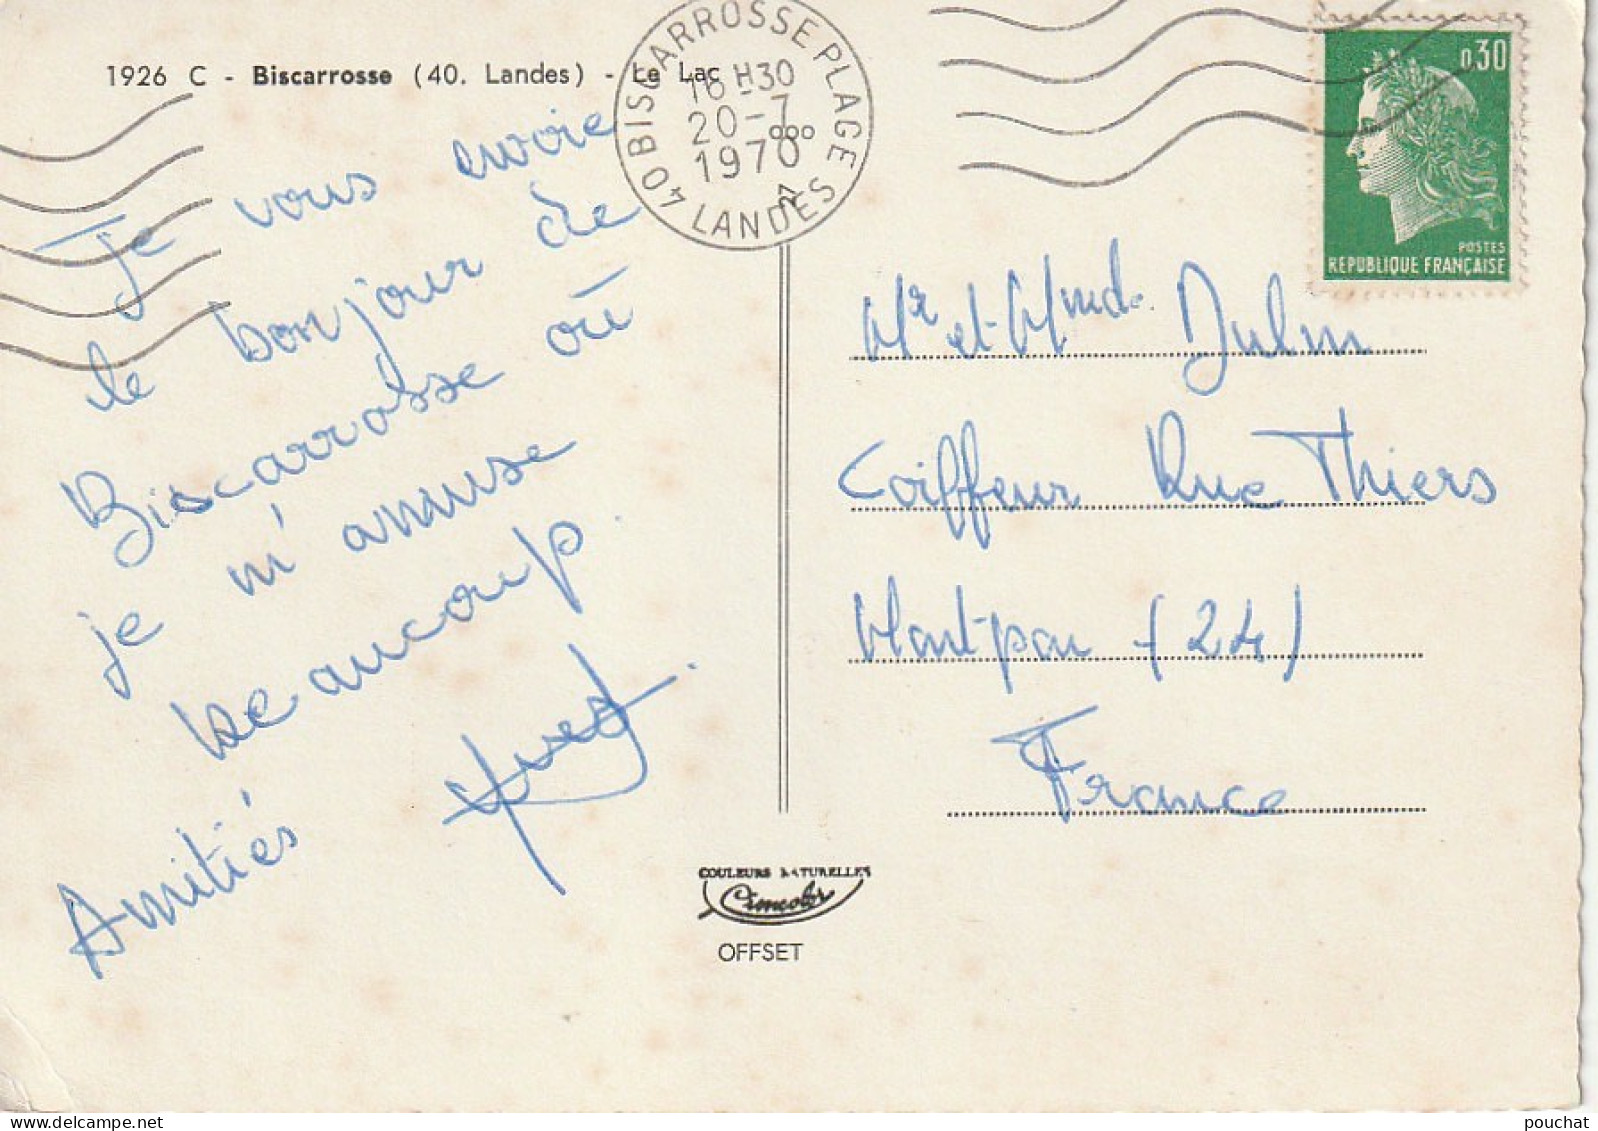 1926 C - Biscarrosse (40. Landes) - Le Lac
40 BISCARROSSE PLAGE
16 H30
20-7
1970
LANDES
0,30
POSTES
REPUBLIQUE FRANÇAISE
Je vous envoie
le bonjour de
Biscarrosse où
je m'amuse
beaucoup.
Amitiés Yves
Mr et Mmde
Coiffeur Rue Thiers
Montpon (24)
France
COULEURS NATURELLES
Cimcolor
OFFSET
pouchat